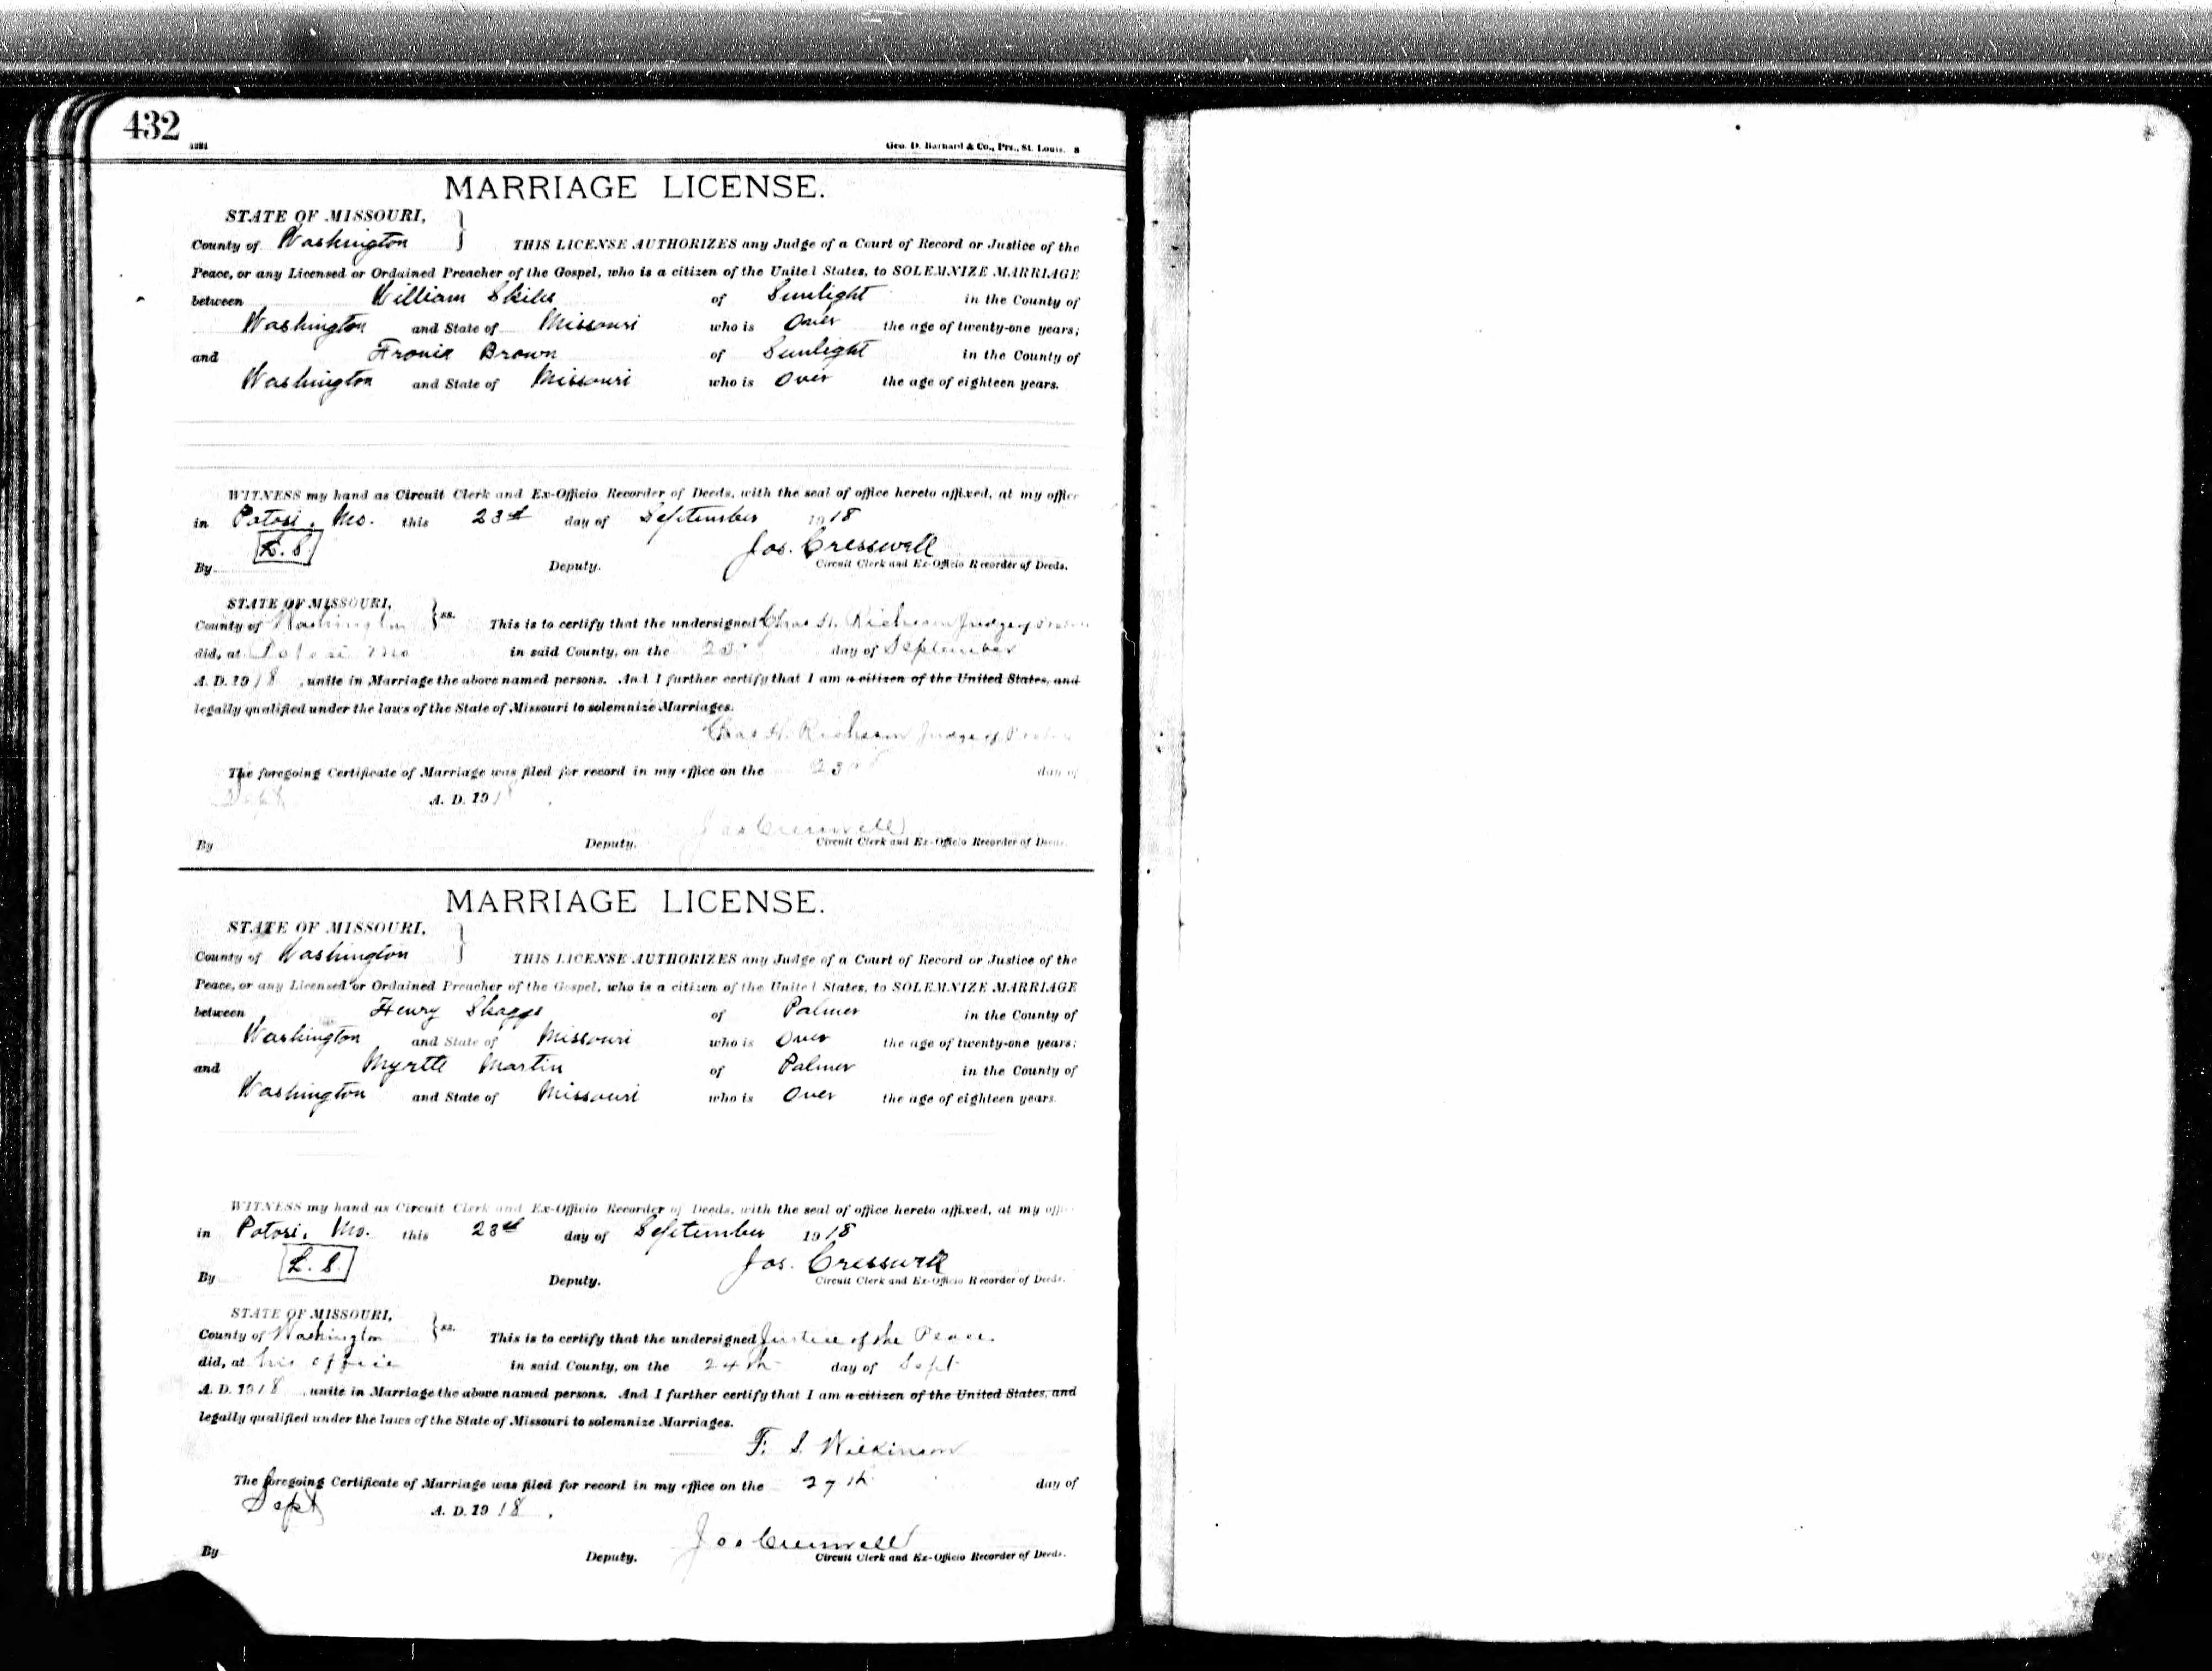 432
Geo. D. Barnard & Co., Prs., St. Louis.
MARRIAGE LICENSE.
STATE OF MISSOURI,
County of Washington } THIS LICENSE AUTHORIZES any Judge of a Court of Record or Justice of the
Peace, or any Licensed or Ordained Preacher of the Gospel, who is a citizen of the United States, to SOLEMNIZE MARRIAGE
between William Skiles of Sunlight in the County of
Washington and State of Missouri who is Over the age of twenty-one years;
and Brown of Sunlight in the County of
Washington and State of Missouri who is Over the age of eighteen years.
WITNESS my hand as Circuit Clerk and Ex-Officio Recorder of Deeds, with the seal of office hereto affixed, at my office
in Potosi, Mo. this 23d day of September 1918
L. S. Jos. Cresswell
By Deputy. Circuit Clerk and Ex-Officio Recorder of Deeds.
STATE OF MISSOURI,
County of Washington } ss. This is to certify that the undersigned Chas H. Richeson Judge of
did, at Potosi Mo in said County, on the 23rd day of September
A. D. 1918, unite in Marriage the above named persons. And I further certify that I am a citizen of the United States, and
legally qualified under the laws of the State of Missouri to solemnize Marriages.
Chas H. Richeson Judge of
The foregoing Certificate of Marriage was filed for record in my office on the 23rd day of
Sept A. D. 1918.
Jos Cresswell
By Deputy. Circuit Clerk and Ex-Officio Recorder of Deeds.
MARRIAGE LICENSE.
STATE OF MISSOURI,
County of Washington } THIS LICENSE AUTHORIZES any Judge of a Court of Record or Justice of the
Peace, or any Licensed or Ordained Preacher of the Gospel, who is a citizen of the United States, to SOLEMNIZE MARRIAGE
between Henry Skaggs of Palmer in the County of
Washington and State of Missouri who is Over the age of twenty-one years;
and Myrtle Martin of Palmer in the County of
Washington and State of Missouri who is Over the age of eighteen years.
WITNESS my hand as Circuit Clerk and Ex-Officio Recorder of Deeds, with the seal of office hereto affixed, at my office
in Potosi, Mo. this 23d day of September 1918
L. S. Jos. Cresswell
By Deputy. Circuit Clerk and Ex-Officio Recorder of Deeds.
STATE OF MISSOURI,
County of Washington } ss. This is to certify that the undersigned Justice of the Peace.
did, at his office in said County, on the 24th day of Sept
A. D. 1918, unite in Marriage the above named persons. And I further certify that I am a citizen of the United States, and
legally qualified under the laws of the State of Missouri to solemnize Marriages.
F. S. Wilkinson
The foregoing Certificate of Marriage was filed for record in my office on the 27th day of
Sept A. D. 1918.
Jos Cresswell
By Deputy. Circuit Clerk and Ex-Officio Recorder of Deeds.